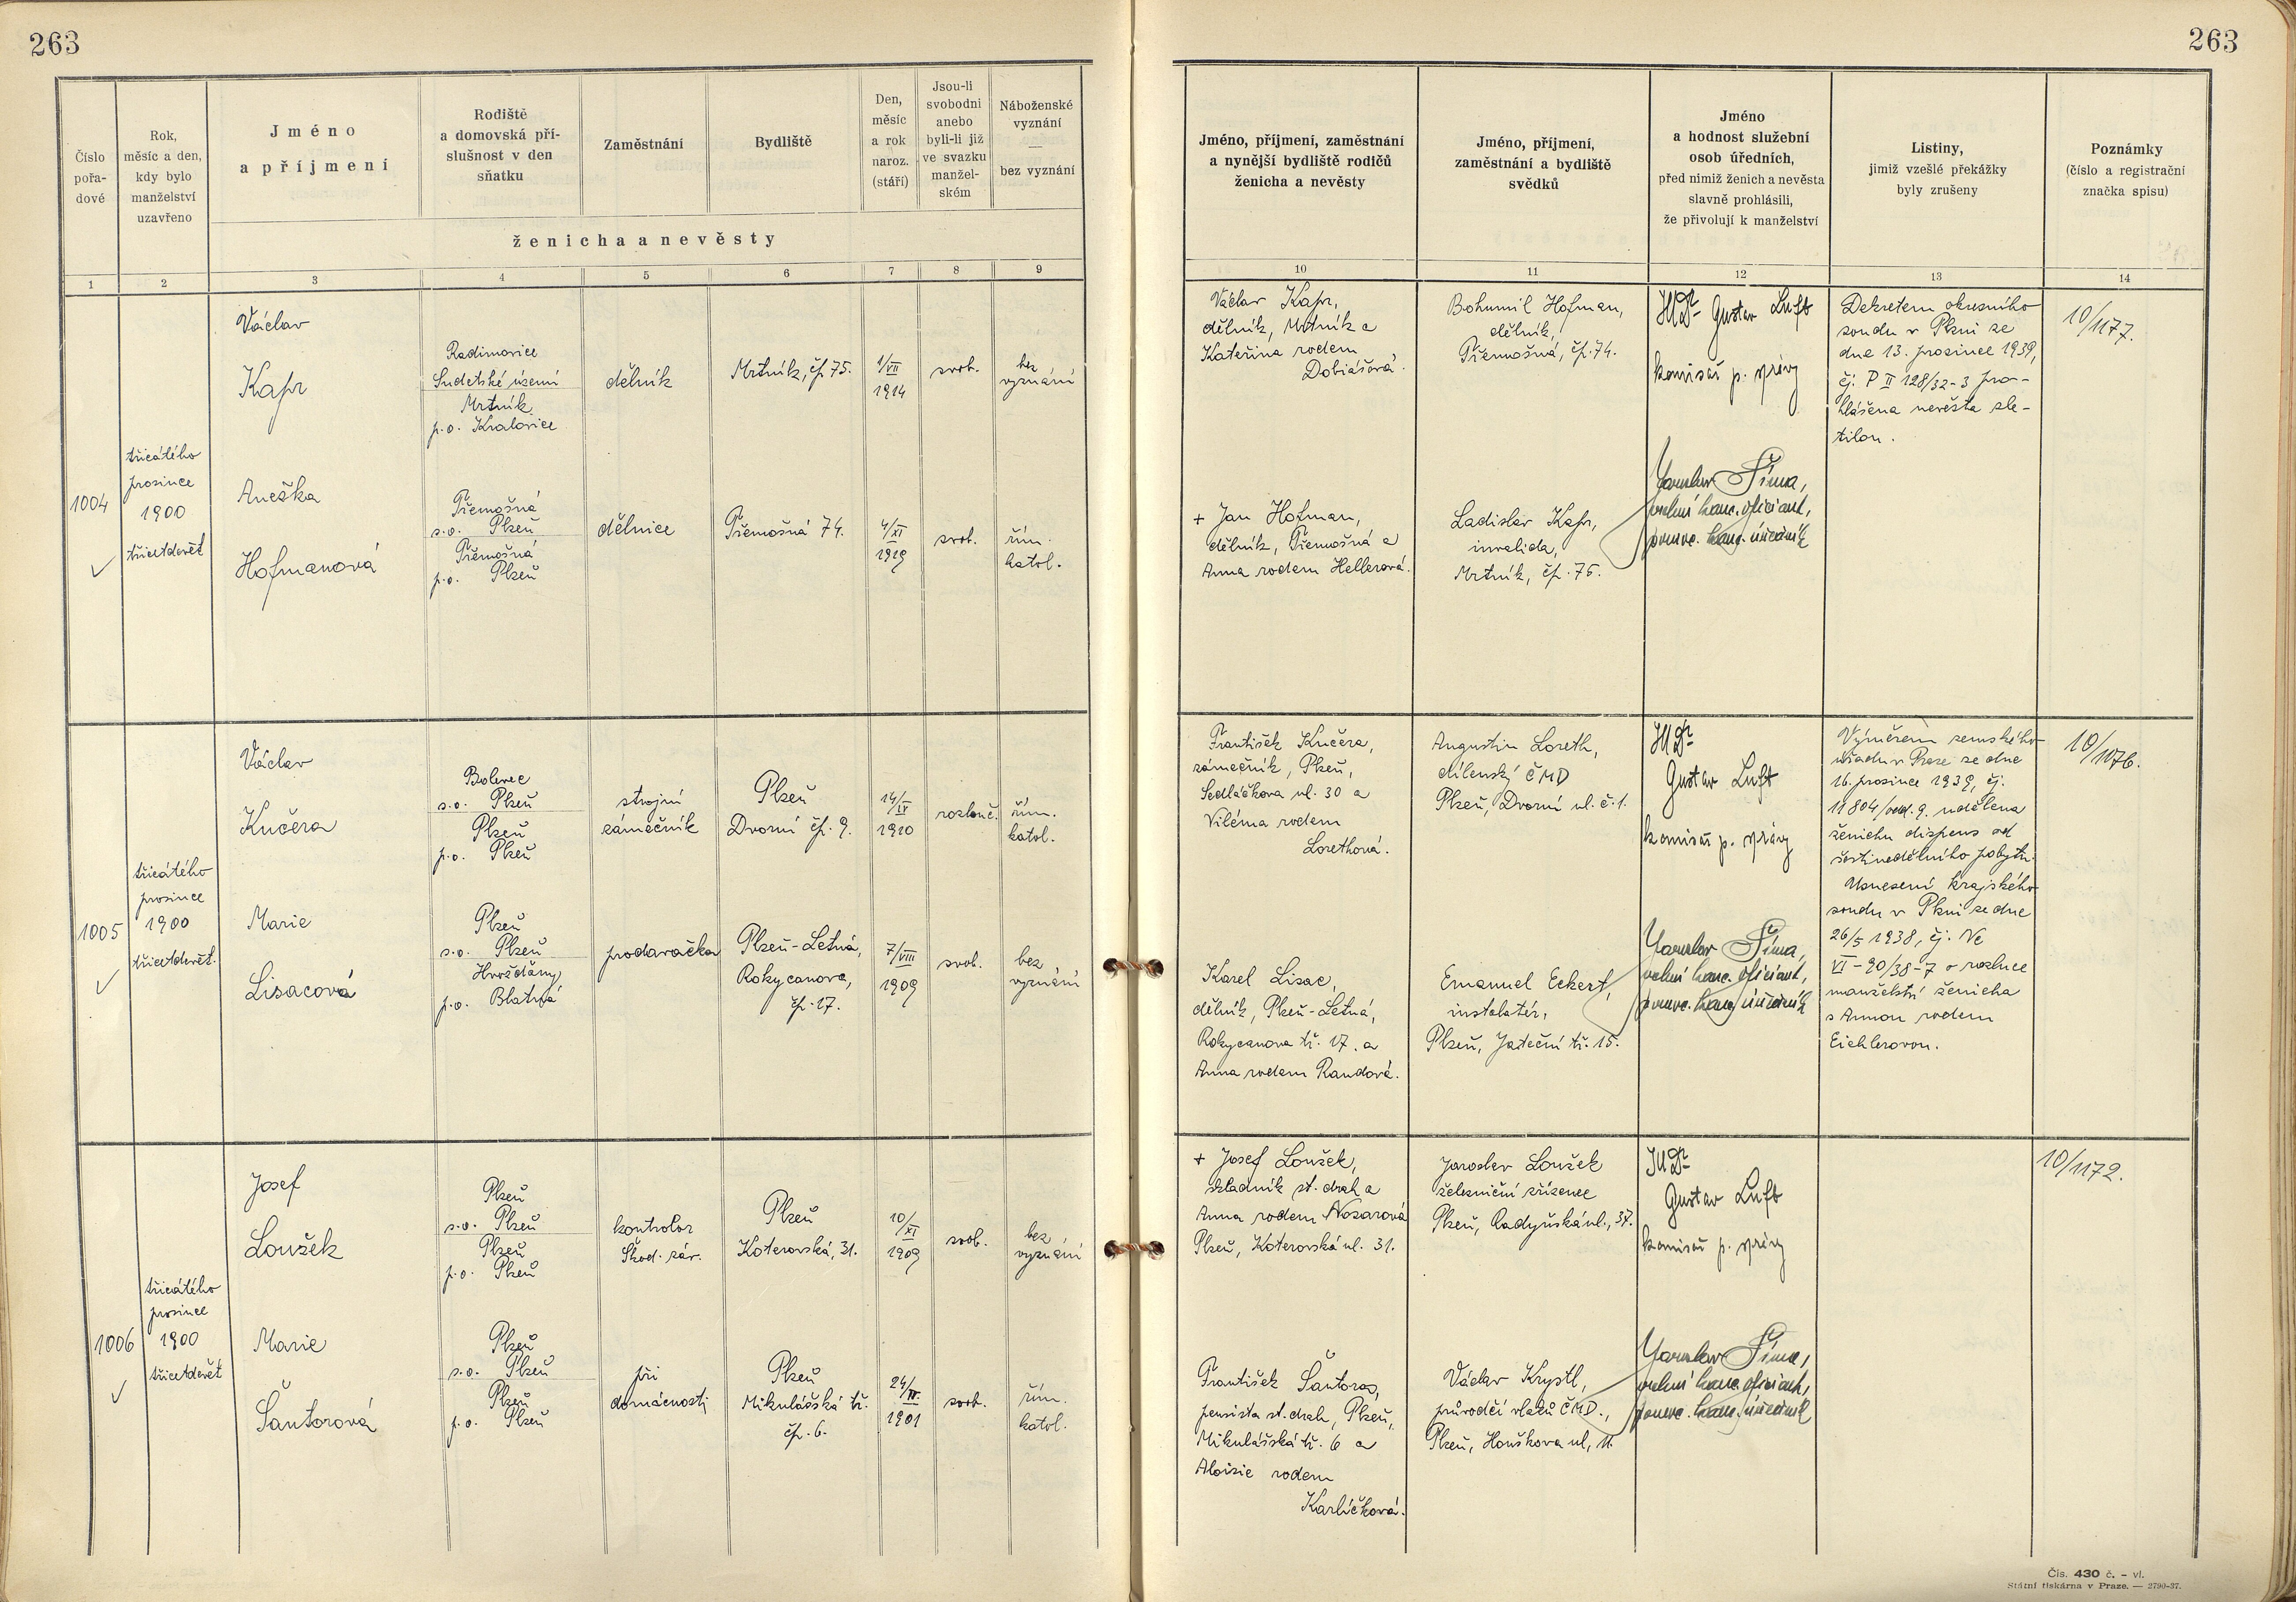 263
263
Číslo
pořa-
dové
Rok,
měsíc a den,
kdy bylo
manželství
uzavřeno
Jméno
a příjmení
Rodiště
a domovská pří-
slušnost v den
sňatku
Zaměstnání
Bydliště
Den,
měsíc
a rok
naroz.
(stáří)
Jsou-li
svobodni
anebo
byli-li již
ve svazku
manžel-
ském
Náboženské
vyznání
—
bez vyznání
ženicha a nevěsty
Jméno, příjmení, zaměstnání
a nynější bydliště rodičů
ženicha a nevěsty
Jméno, příjmení,
zaměstnání a bydliště
svědků
Jméno
a hodnost služební
osob úředních,
před nimiž ženich a nevěsta
slavně prohlásili,
že přivolují k manželství
Listiny,
jimiž vzešlé překážky
byly zrušeny
Poznámky
(číslo a registrační
značka spisu)
1 2 3 4 5 6 7 8 9 10 11 12 13 14
1004
třicátého
prosince
1900
třicetdevět
Václav
Kapr
Radimovice
Sudetské území
Mrtník
p.o. Kralovice
dělník
Mrtník, čp. 75.
1/VII
1914
svob.
bez
vyznání
Anežka
Hofmanová
Třemošná
s.o. Plzeň
Třemošná
p.o. Plzeň
dělnice
Třemošná 74.
4/XI
1919
svob.
řím.
katol.
Václav Kapr,
dělník, Mrtník a
Kateřina rodem
Dobiášová.
+ Jan Hofman,
dělník, Třemošná a
Anna rodem Hellerová.
Bohumil Hofman,
dělník,
Třemošná, čp. 74.
Ladislav Kapr,
invalida,
Mrtník, čp. 75.
JUDr Gustav Luft
komisař p. správy
Jaroslav Šíma,
vrchní kanc. oficiant,
pomoc. kanc. úředník
Dekretem okresního
soudu v Plzni ze
dne 13. prosince 1939,
čj. P II 128/32-3 pro-
hlášena nevěsta zle-
tilou.
10/1177.
1005
třicátého
prosince
1900
třicetdevět.
Václav
Kučera
Bolevec
s.o. Plzeň
Plzeň
p.o. Plzeň
strojní
zámečník
Plzeň
Dvorní čp. 9.
14/IV
1910
rozlouč.
řím.
katol.
Marie
Lisacová
Plzeň
s.o. Plzeň
Hvožďany
p.o. Blatná
prodavačka
Plzeň-Letná,
Rokycanova,
čp. 17.
7/VIII
1909
svob.
bez
vyznání
František Kučera,
zámečník, Plzeň,
Sedláčkova ul. 30 a
Viléma rodem
Lorethová.
Karel Lisac,
dělník, Plzeň-Letná,
Rokycanova tř. 17. a
Anna rodem Randová.
Augustin Loreth,
dílenský ČMD
Plzeň, Dvorní ul. č. 1.
Emanuel Eckert,
instalatér,
Plzeň, Jateční tř. 15.
JUDr
Gustav Luft
komisař p. správy
Jaroslav Šíma,
vrchní kanc. oficiant,
pomoc. kanc. úředník
Výměrem zemského
úřadu v Praze ze dne
16. prosince 1939, čj.
11804/odd. 9. udělena
ženichu dispens od
šestinedělního pobytu.
Usnesení krajského
soudu v Plzni ze dne
26/5 1938, čj. Nc
VI-90/38-7 o rozluce
manželství ženicha
s Annou rodem
Eichlerovou.
10/1176.
1006
třicátého
prosince
1900
třicetdevět
Josef
Loužek
Plzeň
s.o. Plzeň
Plzeň
p.o. Plzeň
kontrolor
Škod. záv.
Plzeň
Koterovská, 31.
10/XI
1909
svob.
bez
vyznání
Marie
Šantorová
Plzeň
s.o. Plzeň
Plzeň
p.o. Plzeň
při
domácnosti
Plzeň
Mikulášská tř.
čp. 6.
1901
svob.
řím.
katol.
+ Josef Loužek,
skladník st. drah a
Anna rodem Nozarová
Plzeň, Koterovská ul. 31.
František Šantora,
pensista st. drah, Plzeň,
Mikulášská tř. 6 a
Aloisie rodem
Karlíčková.
Jaroslav Loužek
železniční zřízenec
Plzeň, Radyňská ul., 37.
Václav Krystl,
průvodčí vlaků ČMD.,
Plzeň, Houškova ul, 11.
JUDr
Gustav Luft
komisař p. správy
Jaroslav Šíma,
vrchní kanc. oficiant,
pomoc. kanc. úředník
10/1172.
Čís. 430 č. – vl.
Státní tiskárna v Praze. — 2790-37.